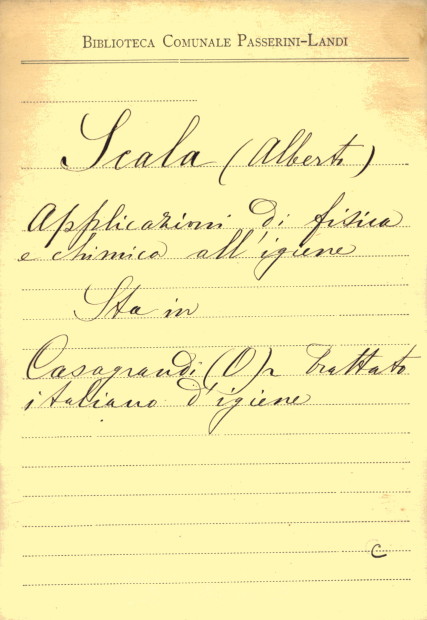 BIBLIOTECA COMUNALE PASSERINI-LANDI
Scala (Alberto)
Applicazioni di fisica
e chimica all'igiene
Sta in
Casagrandi (O) Trattato
italiano d'igiene
C